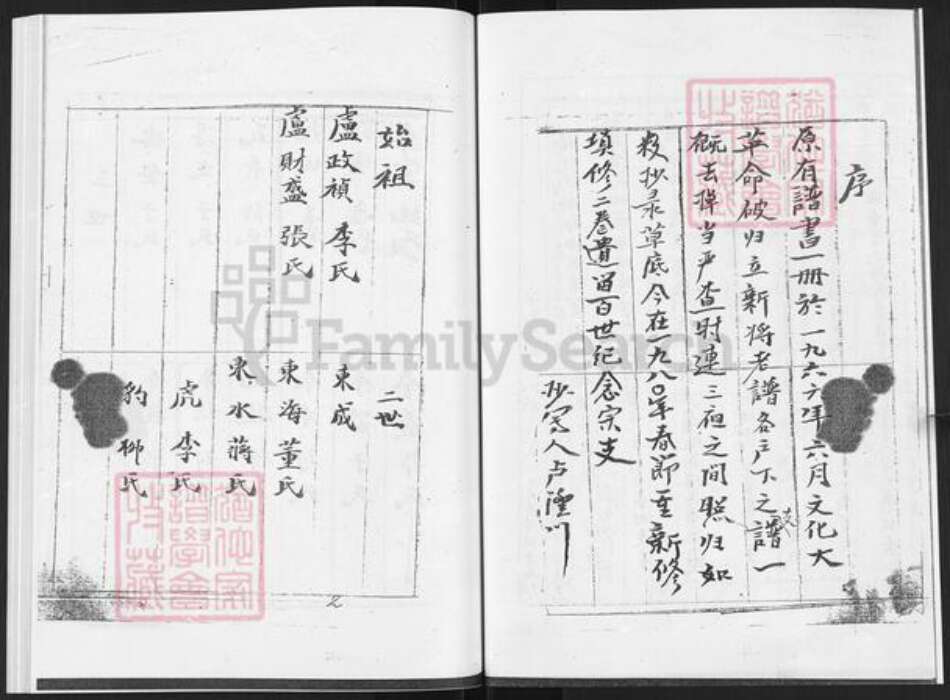 序
原有譜書一册於一九六六年六月文化大
革命破归立新将老譜各户下之譜一
支
概去掉当严查时連三夜之間照归如
数抄录草底今在一九八〇年春节重新修
填修二卷遺留百世纪念宗支
抄写人卢濩川
始祖
盧政禎 李氏
盧財盛 張氏
二世
東成
東海 董氏
東水 蔣氏
虎 李氏
豹 柳氏
2
FamilySearch